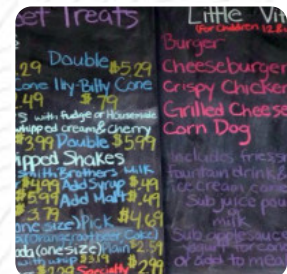 et Treats
Double $5.29
.29
Cone Itty-Bitty Cone
.49 $.79
s with Fudge or Housemade
whipped cream & cherry
$3.99 Double $5.99
ipped Shakes
Smith Brothers Milk
$4.99 Add Syrup $.49
$5.99 Add Malt $.49
3.79
one size) Pick $4.69
Craft Beer Cake)
oda (one size) Plain $2.59
with whip $3.19
$2.99 Specialty
Little Vit
(For Children 12 &
Burger
Cheeseburger
Crispy Chicken
Grilled Cheese
Corn Dog
Includes fries
fountain drink &
ice cream cone
Sub juice pou
milk
Sub applesauce
yogurt for cone
or add to meal